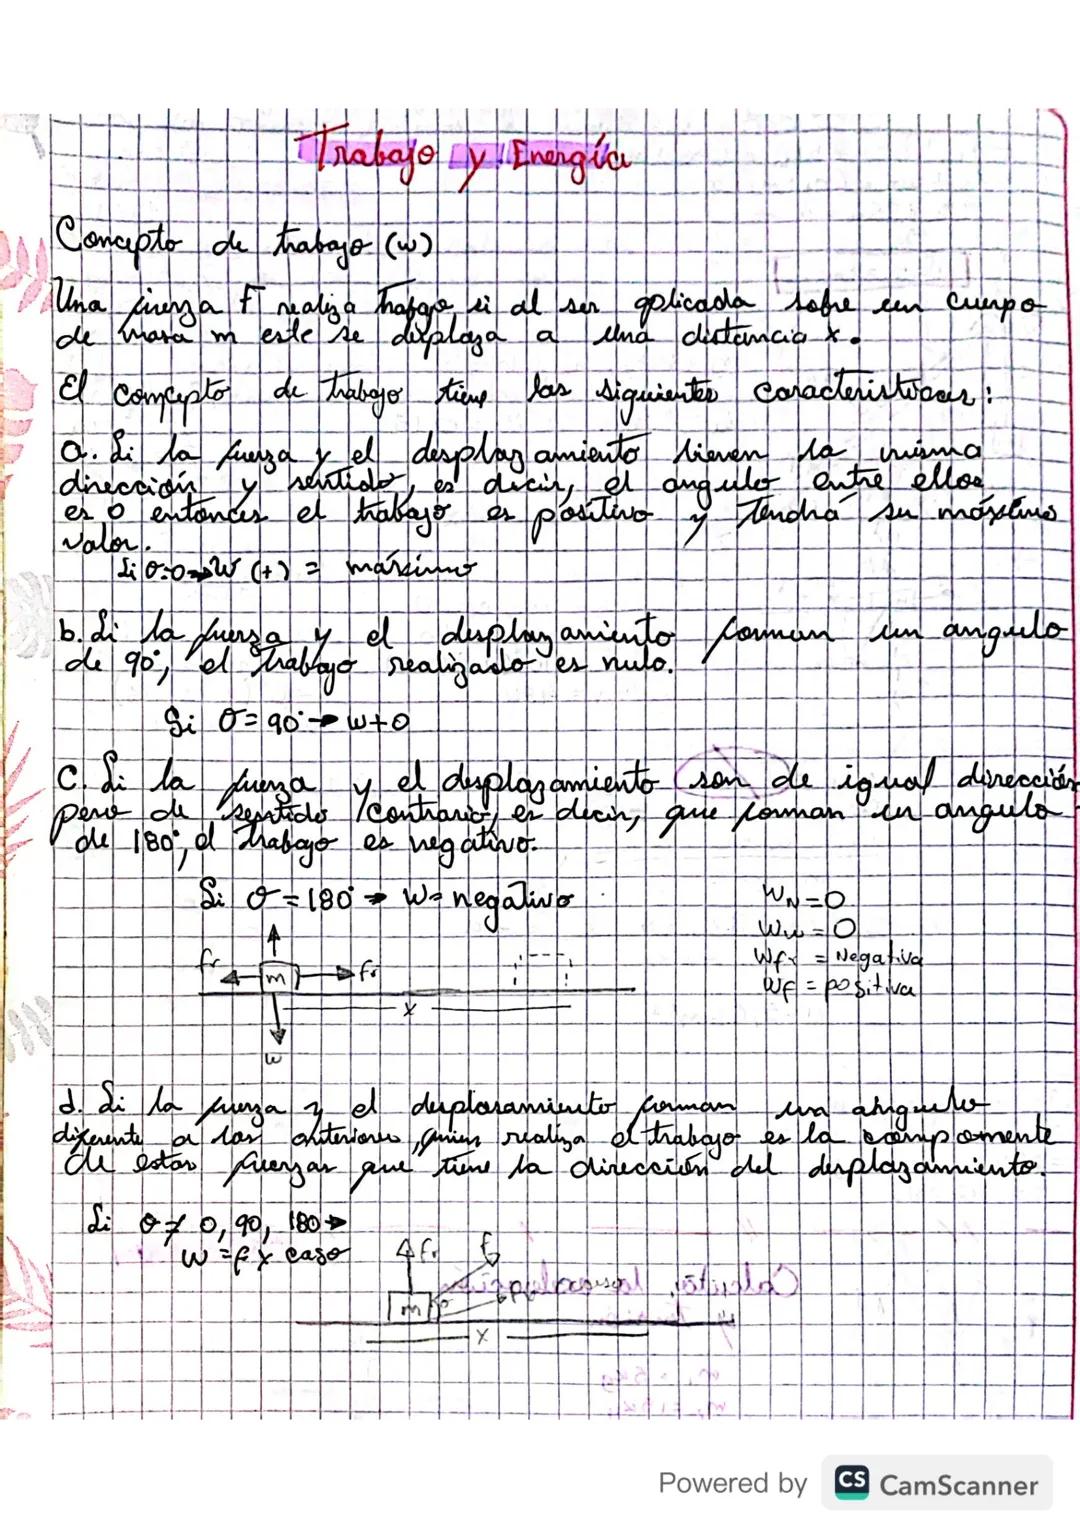 Trabajo y Energía
Concepto de trabajo (w)
Una fuerza F realiza trabajo, si al ser aplicada sobre un cuerpo
de masa m este se desplaza a una distancia x.
El concepto de trabajo tiene las siguientes características:
a. Si la fuerza y el desplazamiento tienen la misma
dirección y sentido, es decir, el angulo entre ellos
es 0 entonces el trabajo es positivo y Tendrá su máximo
valor.
Si θ=0→W (+) = máximo
b. Si la fuerza y el desplazamiento forman un angulo
de 90°, el trabajo realizado es nulo.
Si θ=90°→ w+0
C. Si la fuerza y el desplazamiento son de igual dirección
pero de sentido contrario, es decir, que forman un angulo
de 180°, el trabajo es negativo.
Si θ=180°→ W= negativo
WN=0
Ww=0
Wfr = Negativa
WF = positiva
fr
m
fr
x
w
d. Si la fuerza y el desplasamiento forman un angulo
diferente a los anteriores, quien realiza el trabajo es la componente
de estas fuerzas que tiene la dirección del desplazamiento.
Si θ≠ 0, 90, 180→
W=f x caso
fr
f
m
x
Powered by CS CamScanner